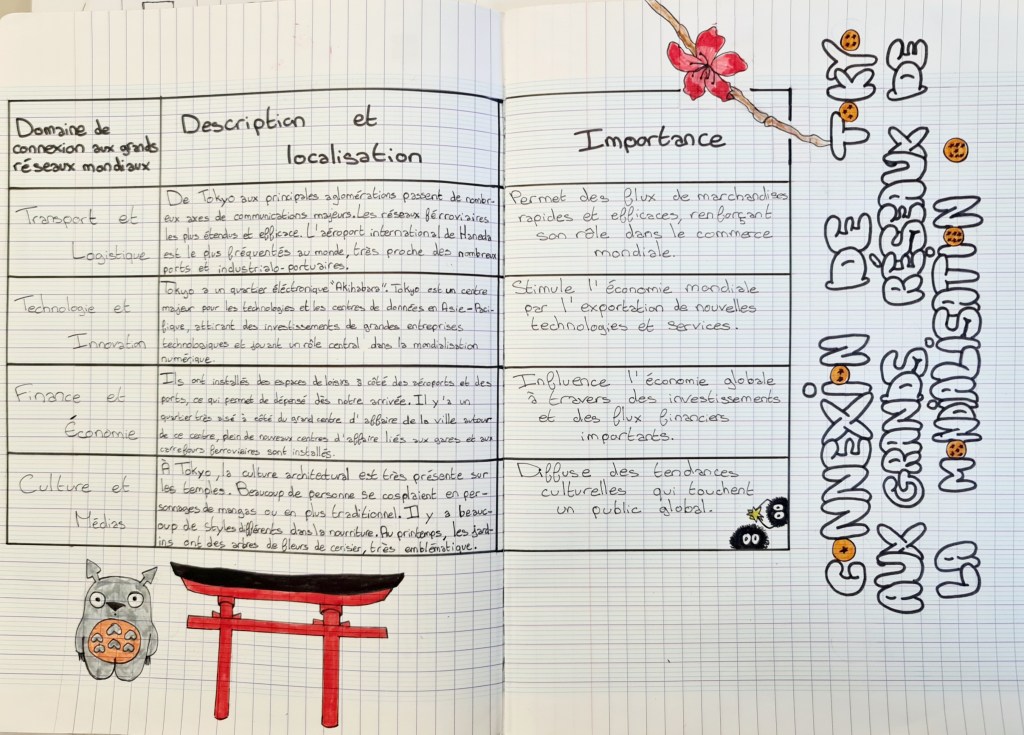 CONNEXION DE TOKYO
AUX GRANDS RÉSEAUX DE
LA MONDIALISATION
Domaine de
connexion aux grands
réseaux mondiaux
Description et
localisation
Importance
Transport et
Logistique
De Tokyo aux principales aglomérations passent de nombr-
eux axes de communications majeurs. Les réseaux ferroviaires
les plus étendus et efficace. L'aéroport international de Haneda
est le plus fréquentés au monde, très proche des nombreux
ports et industrialo-portuaires.
Permet des flux de marchandises
rapides et efficaces, renforçant
son rôle dans le commerce
mondiale.
Technologie et
Innovation
Tokyo a un quartier électronique "Akihabara". Tokyo est un centre
majeur pour les technologies et les centres de données en Asie-Paci-
fique, attirant des investissements de grandes entreprises
technologiques et jouant un rôle central dans la mondialisation
numérique.
Stimule l'économie mondiale
par l'exportation de nouvelles
technologies et services.
Finance et
Économie
Ils ont installés des espaces de loisirs à côté des aéroports et des
ports, ce qui permet de dépensé dès notre arrivée. Il y'a un
quartier très aisé à côté du grand centre d'affaire de la ville autour
de ce centre, plein de nouveaux centres d'affaire liés aux gares et aux
carrefours ferroviaires sont installés.
Influence l'économie globale
à travers des investissements
et des flux financiers
importants.
Culture et
Médias
À Tokyo, la culture architectural est très présente sur
les temples. Beaucoup de personne se cosplaient en per-
sonnages de mangas ou en plus traditionnel. Il y a beauc-
oup de styles différents dans la nourriture. Au printemps, les jard-
ins ont des arbres de fleurs de cerisier, très emblématique.
Diffuse des tendances
culturelles qui touchent
un public global.